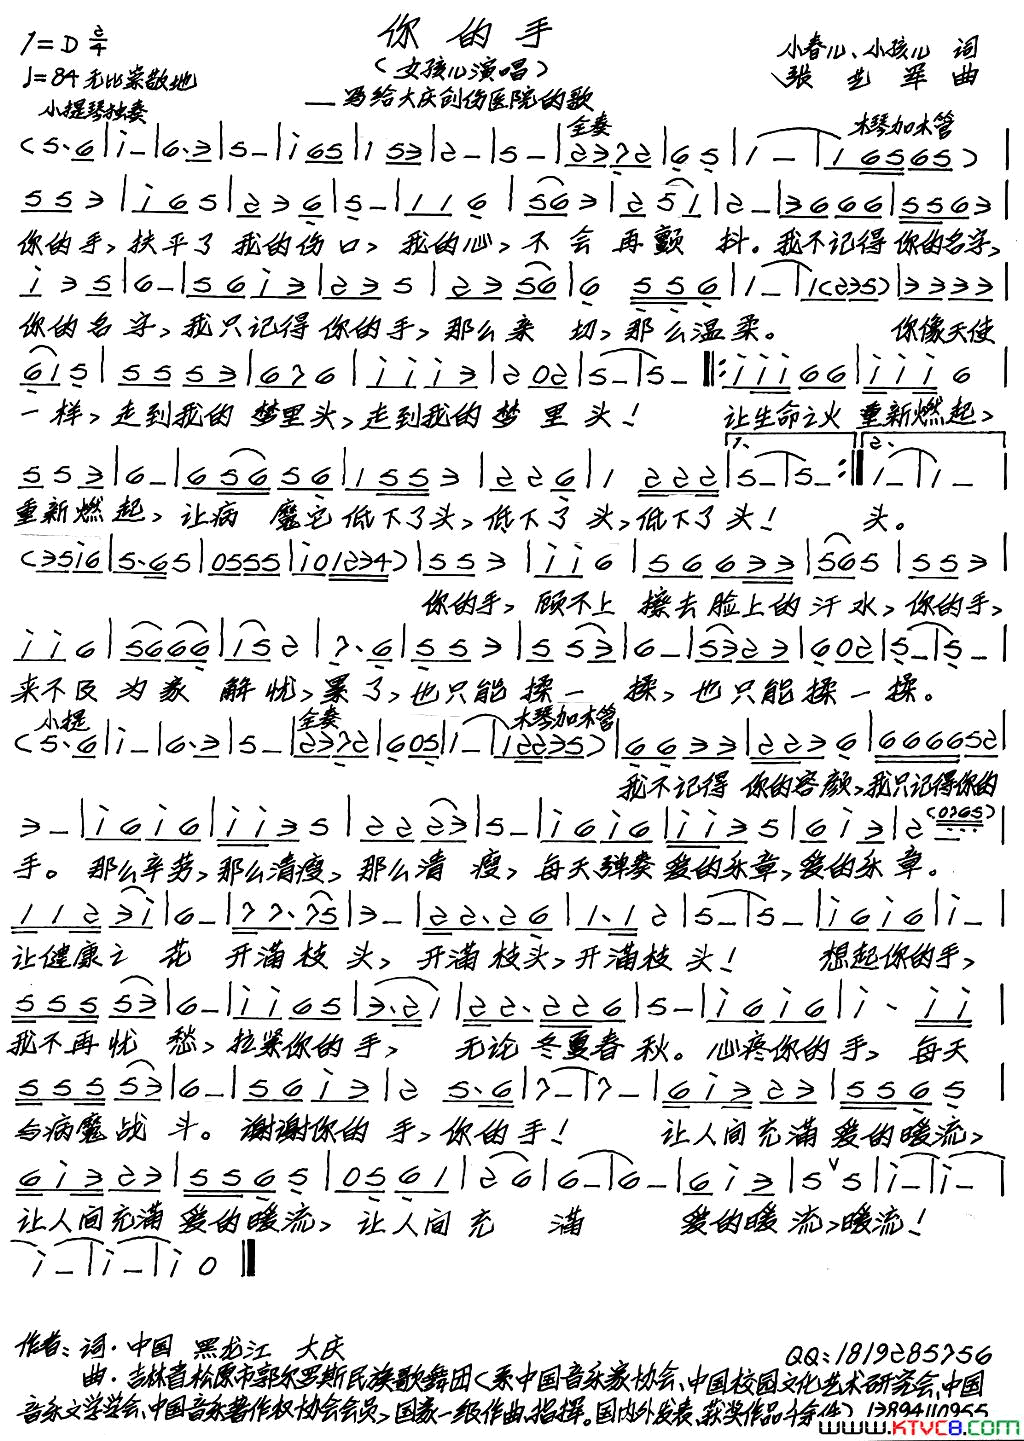 你的手
1=D 2/4
(女孩儿演唱)
小春儿、小孩儿 词
♩=84 无比崇敬地
张艺军 曲
——写给大庆创伤医院的歌
小提琴独奏
全奏
木琴加木管
你的手,扶平了我的伤口,我的心,不会再颤抖。我不记得你的名字,
你的名字,我只记得你的手,那么亲切,那么温柔。你像天使
一样,走到我的梦里头,走到我的梦里头!让生命之火重新燃起,
1、 2、
重新燃起,让病魔它低下了头,低下了头,低下了头!头。
你的手,顾不上擦去脸上的汗水,你的手,
来不及为家解忧,累了,也只能揉一揉,也只能揉一揉。
小提
全奏
木琴加木管
我不记得你的容颜,我只记得你的
手。那么辛劳,那么清瘦,那么清瘦,每天弹奏爱的乐章,爱的乐章。
让健康之花开满枝头,开满枝头,开满枝头!想起你的手,
我不再忧愁,拉紧你的手,无论冬夏春秋。心疼你的手,每天
与病魔战斗。谢谢你的手,你的手!让人间充满爱的暖流,
让人间充满爱的暖流,让人间充满爱的暖流,暖流!
作者:词·中国 黑龙江 大庆
QQ:1819285756
曲·吉林省松原市郭尔罗斯民族歌舞团<系中国音乐家协会、中国校园文化艺术研究会、中国
音乐文学学会、中国音乐著作权协会会员>国家一级作曲、指挥。国内外发表、获奖作品千余件)13894110955
www.KTVC8.com